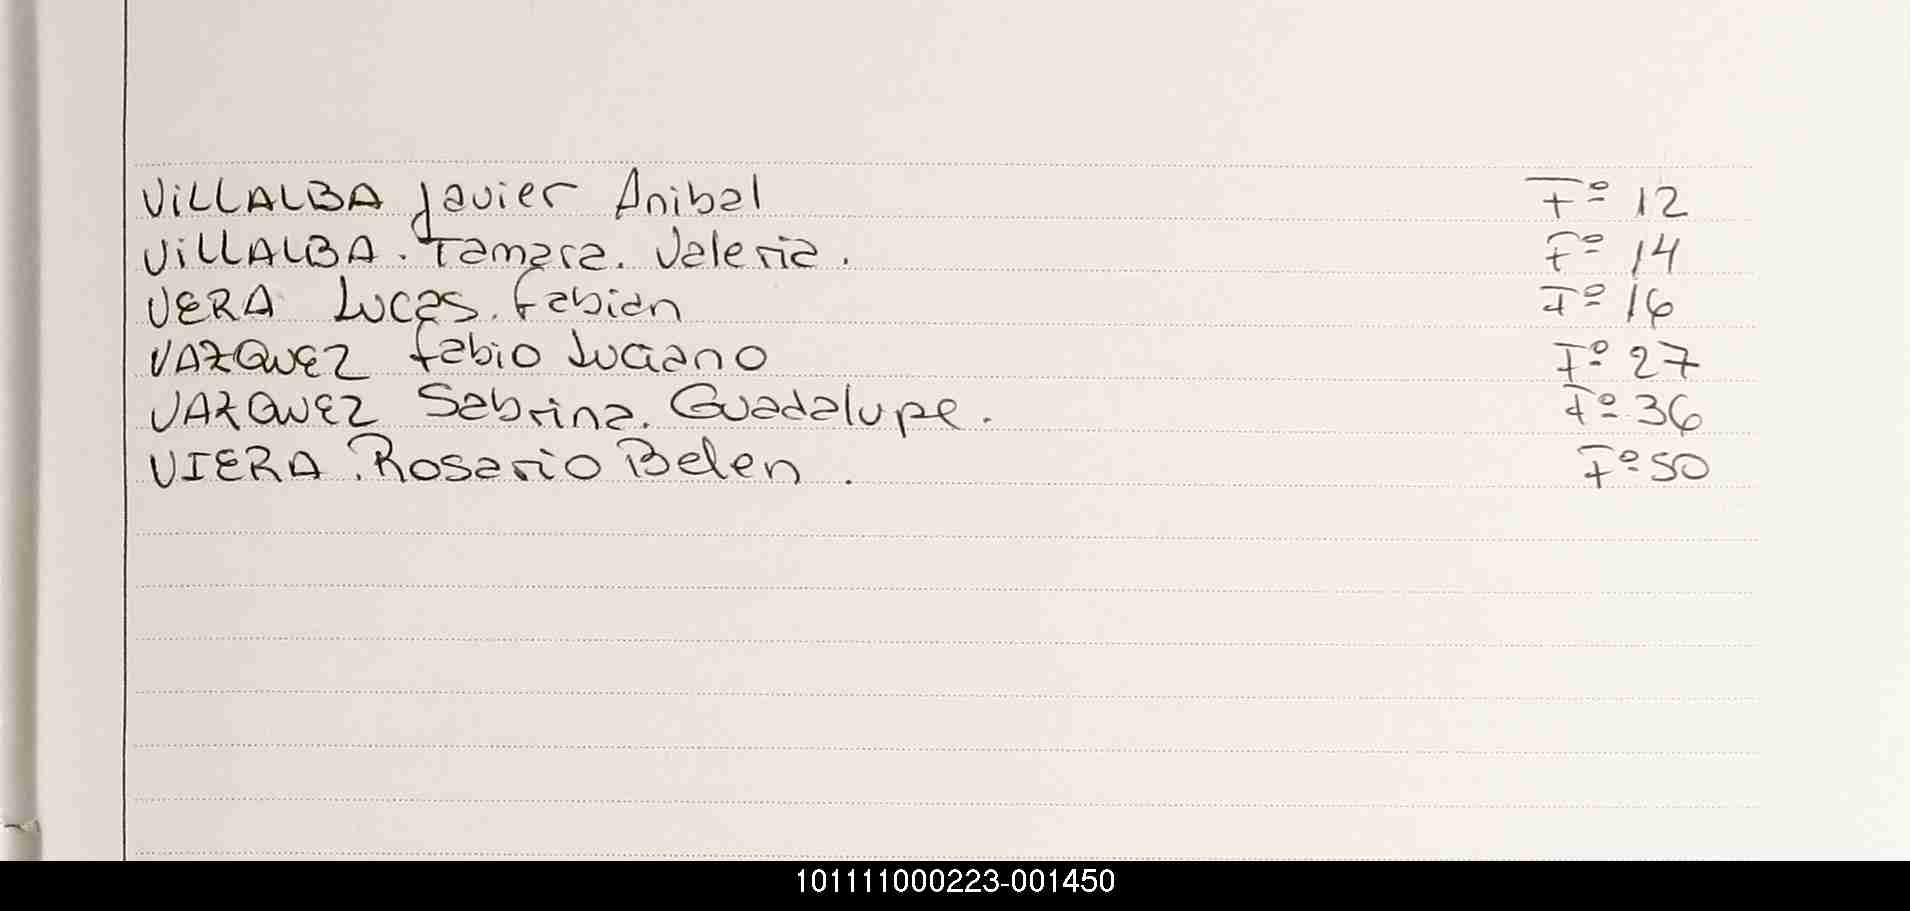 VILLALBA Javier Anibal Fº 12
VILLALBA. Tamara. Valeria. Fº 14
VERA Lucas. Fabian Fº 16
VAZQUEZ Fabio Luciano Fº 27
VAZQUEZ Sabrina. Guadalupe. Fº 36
VIERA. Rosario Belen. Fº 50
101111000223-001450